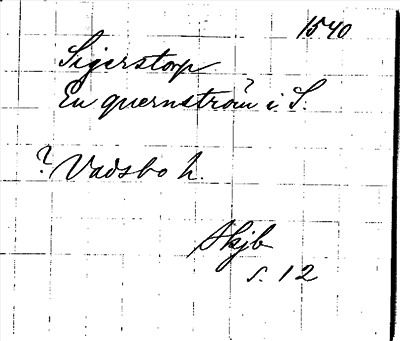 1540
Sigerstorp
En quernström i S.
? Vadsbo h.
Skjb
s. 12